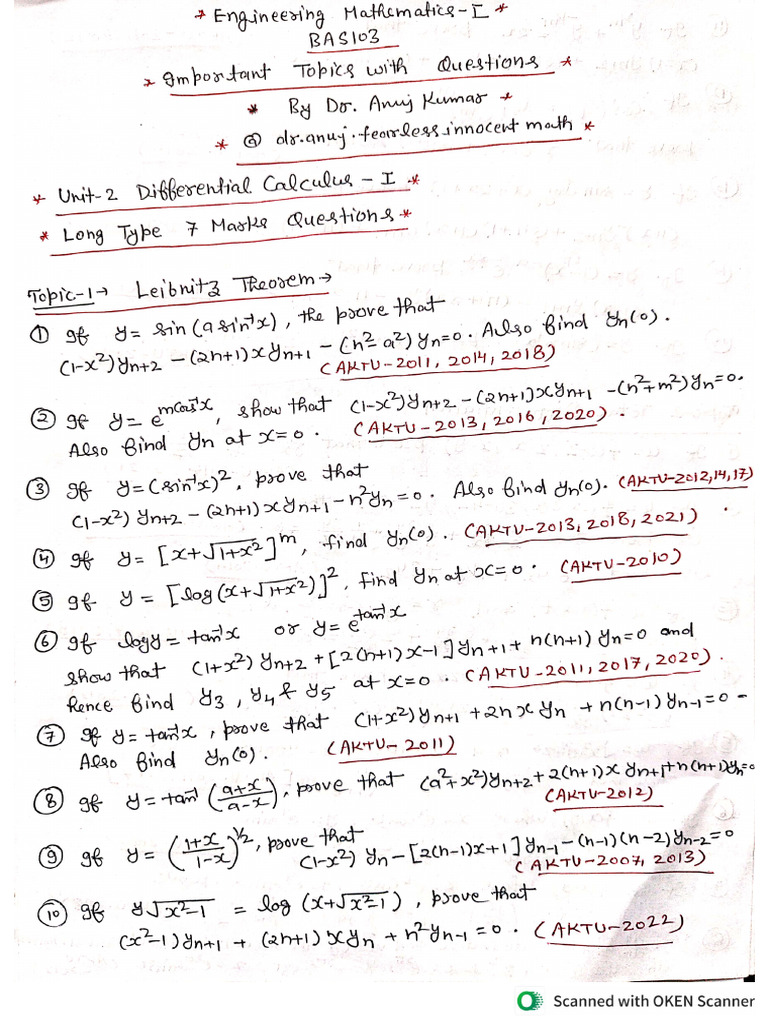 * Engineering Mathematics-I *
BAS103
* Important Topics with Questions *
* By Dr. Anuj Kumar *
* @ dr.anuj.fearless.innocent math *
* Unit-2 Differential Calculus - I *
* Long Type 7 Marks Questions *
Topic-1→ Leibnitz Theorem→
① If y = sin(a sin⁻¹x), the prove that
(1-x²)yₙ₊₂ - (2n+1)xyₙ₊₁ - (n²-a²)yₙ=0. Also find yₙ(0).
(AKTU-2011, 2014, 2018)
② If y = e^(m cos⁻¹x), show that (1-x²)yₙ₊₂ - (2n+1)xyₙ₊₁ - (n²+m²)yₙ=0.
Also find yₙ at x=0. (AKTU-2013, 2016, 2020).
③ If y=(sin⁻¹x)², prove that
(1-x²)yₙ₊₂ - (2n+1)xyₙ₊₁ - n²yₙ=0. Also find yₙ(0). (AKTU-2012,14,17)
④ If y = [x+√(1+x²)]^m, find yₙ(0). (AKTU-2013, 2018, 2021)
⑤ If y = [log(x+√(1+x²))]², find yₙ at x=0. (AKTU-2010)
⑥ If log y = tan⁻¹x or y = e^(tan⁻¹x)
show that (1+x²)yₙ₊₂ + [2(n+1)x-1]yₙ₊₁ + n(n+1)yₙ=0 and
Hence find y₃, y₄ & y₅ at x=0. (AKTU-2011, 2017, 2020).
⑦ If y = tan⁻¹x, prove that (1+x²)yₙ₊₁ + 2nxyₙ + n(n-1)yₙ₋₁=0 -
Also find yₙ(0). (AKTU-2011)
⑧ If y = tan⁻¹((a+x)/(a-x)), prove that (a²+x²)yₙ₊₂ + 2(n+1)xyₙ₊₁ + n(n+1)yₙ=0
(AKTU-2012)
⑨ If y = ((1+x)/(1-x))^(1/2), prove that
(1-x²)yₙ - [2(n-1)x+1]yₙ₋₁ - (n-1)(n-2)yₙ₋₂=0
(AKTU-2007, 2013)
⑩ If y√(x²-1) = log(x+√(x²-1)), prove that
(x²-1)yₙ₊₁ + (2n+1)xyₙ + n²yₙ₋₁=0. (AKTU-2022)
Scanned with OKEN Scanner